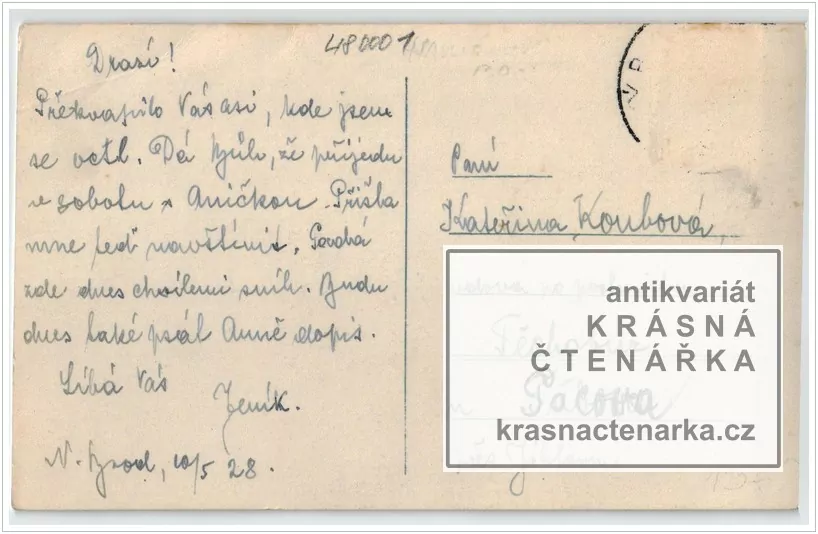 480001
Drazí!
Překvapilo Vás asi, kde jsem
se octl. Dá Bůh, že přijedu
v sobotu s Aničkou. Přišla
mne teď navštívit. Padá
zde dnes chvílemi sníh. Budu
dnes také psát Anně dopis.
Líbá Vás
Jeník.
N. Brod, 10/5 28.
Paní
Kateřina Koubová,
Pacova
antikvariát
KRÁSNÁ
ČTENÁŘKA
krasnactenarka.cz